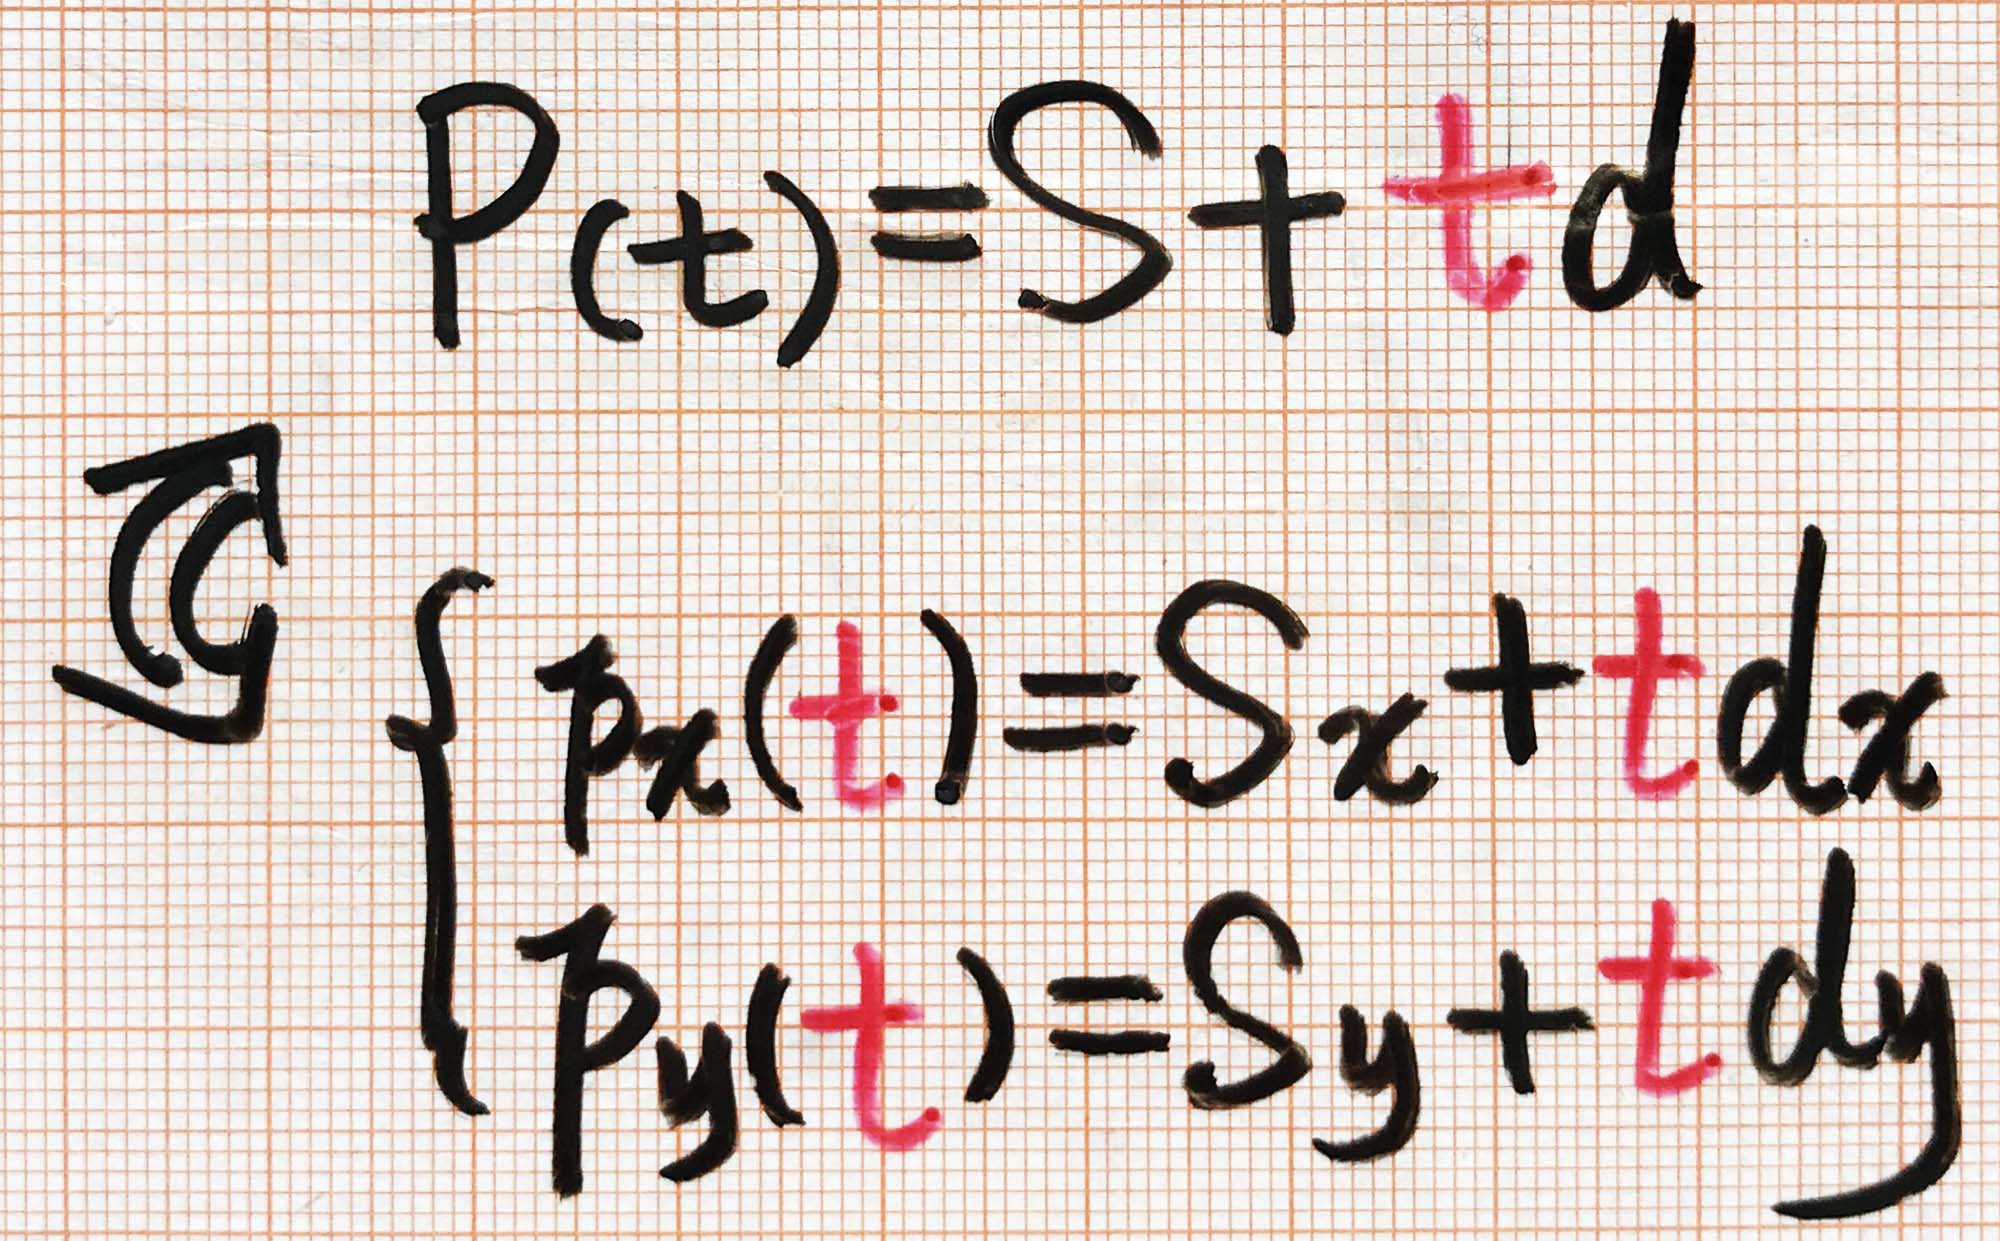 P(t)=S+td
px(t)=Sx+tdx
py(t)=Sy+tdy